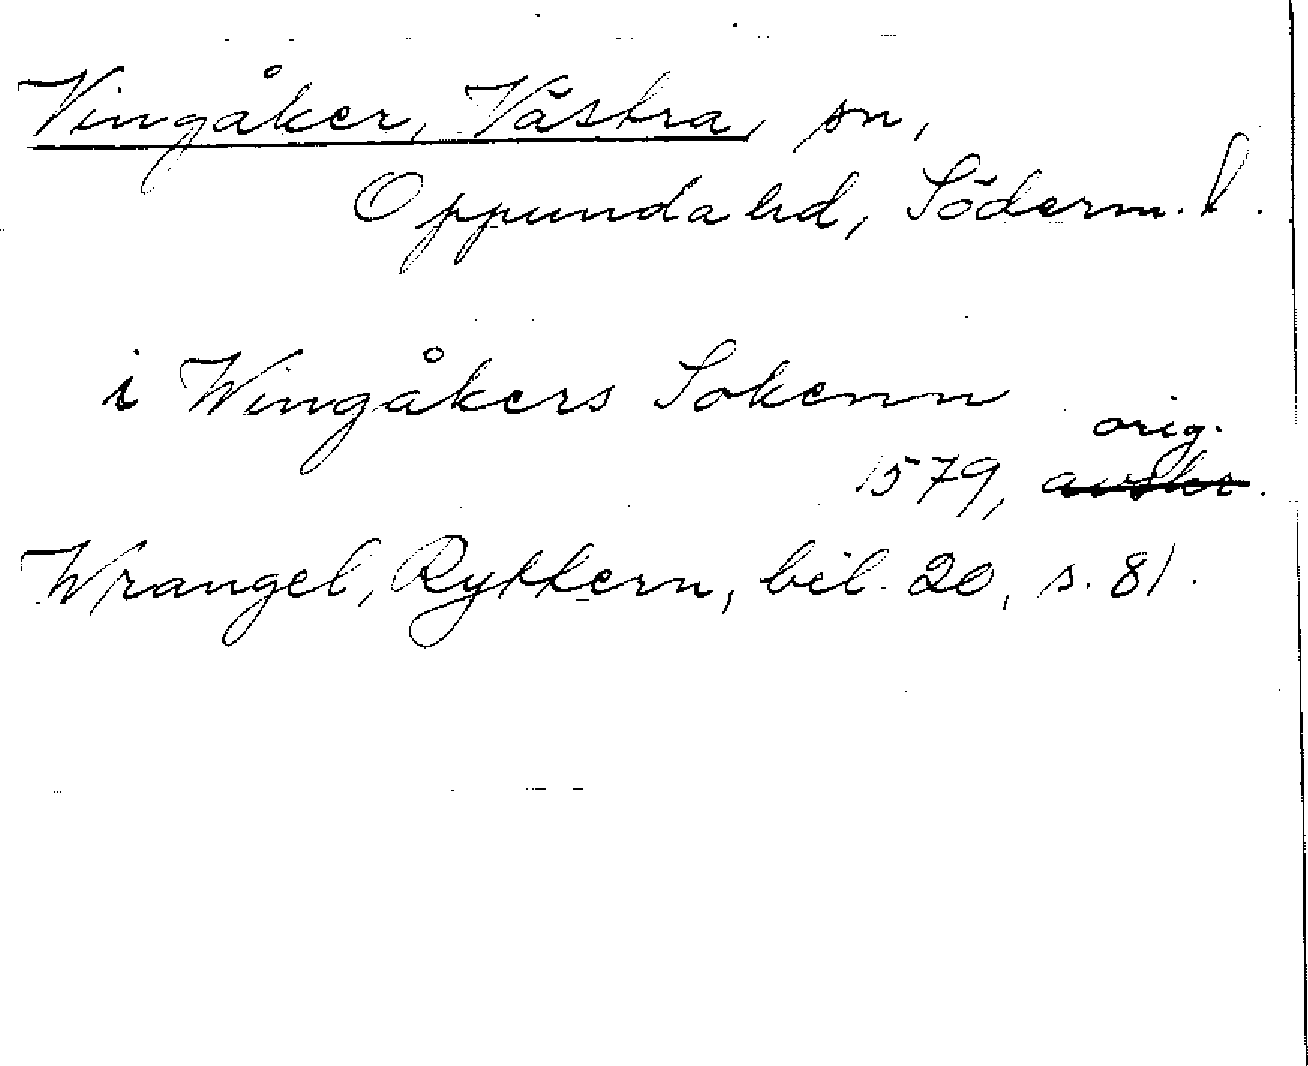 Vingåker, Västra, sn,
Oppunda hd, Söderm. l.
i Wingåkers Sokenn
orig.
1579, avskr.
Wrangel, Ryttern, bil. 20, s. 81.